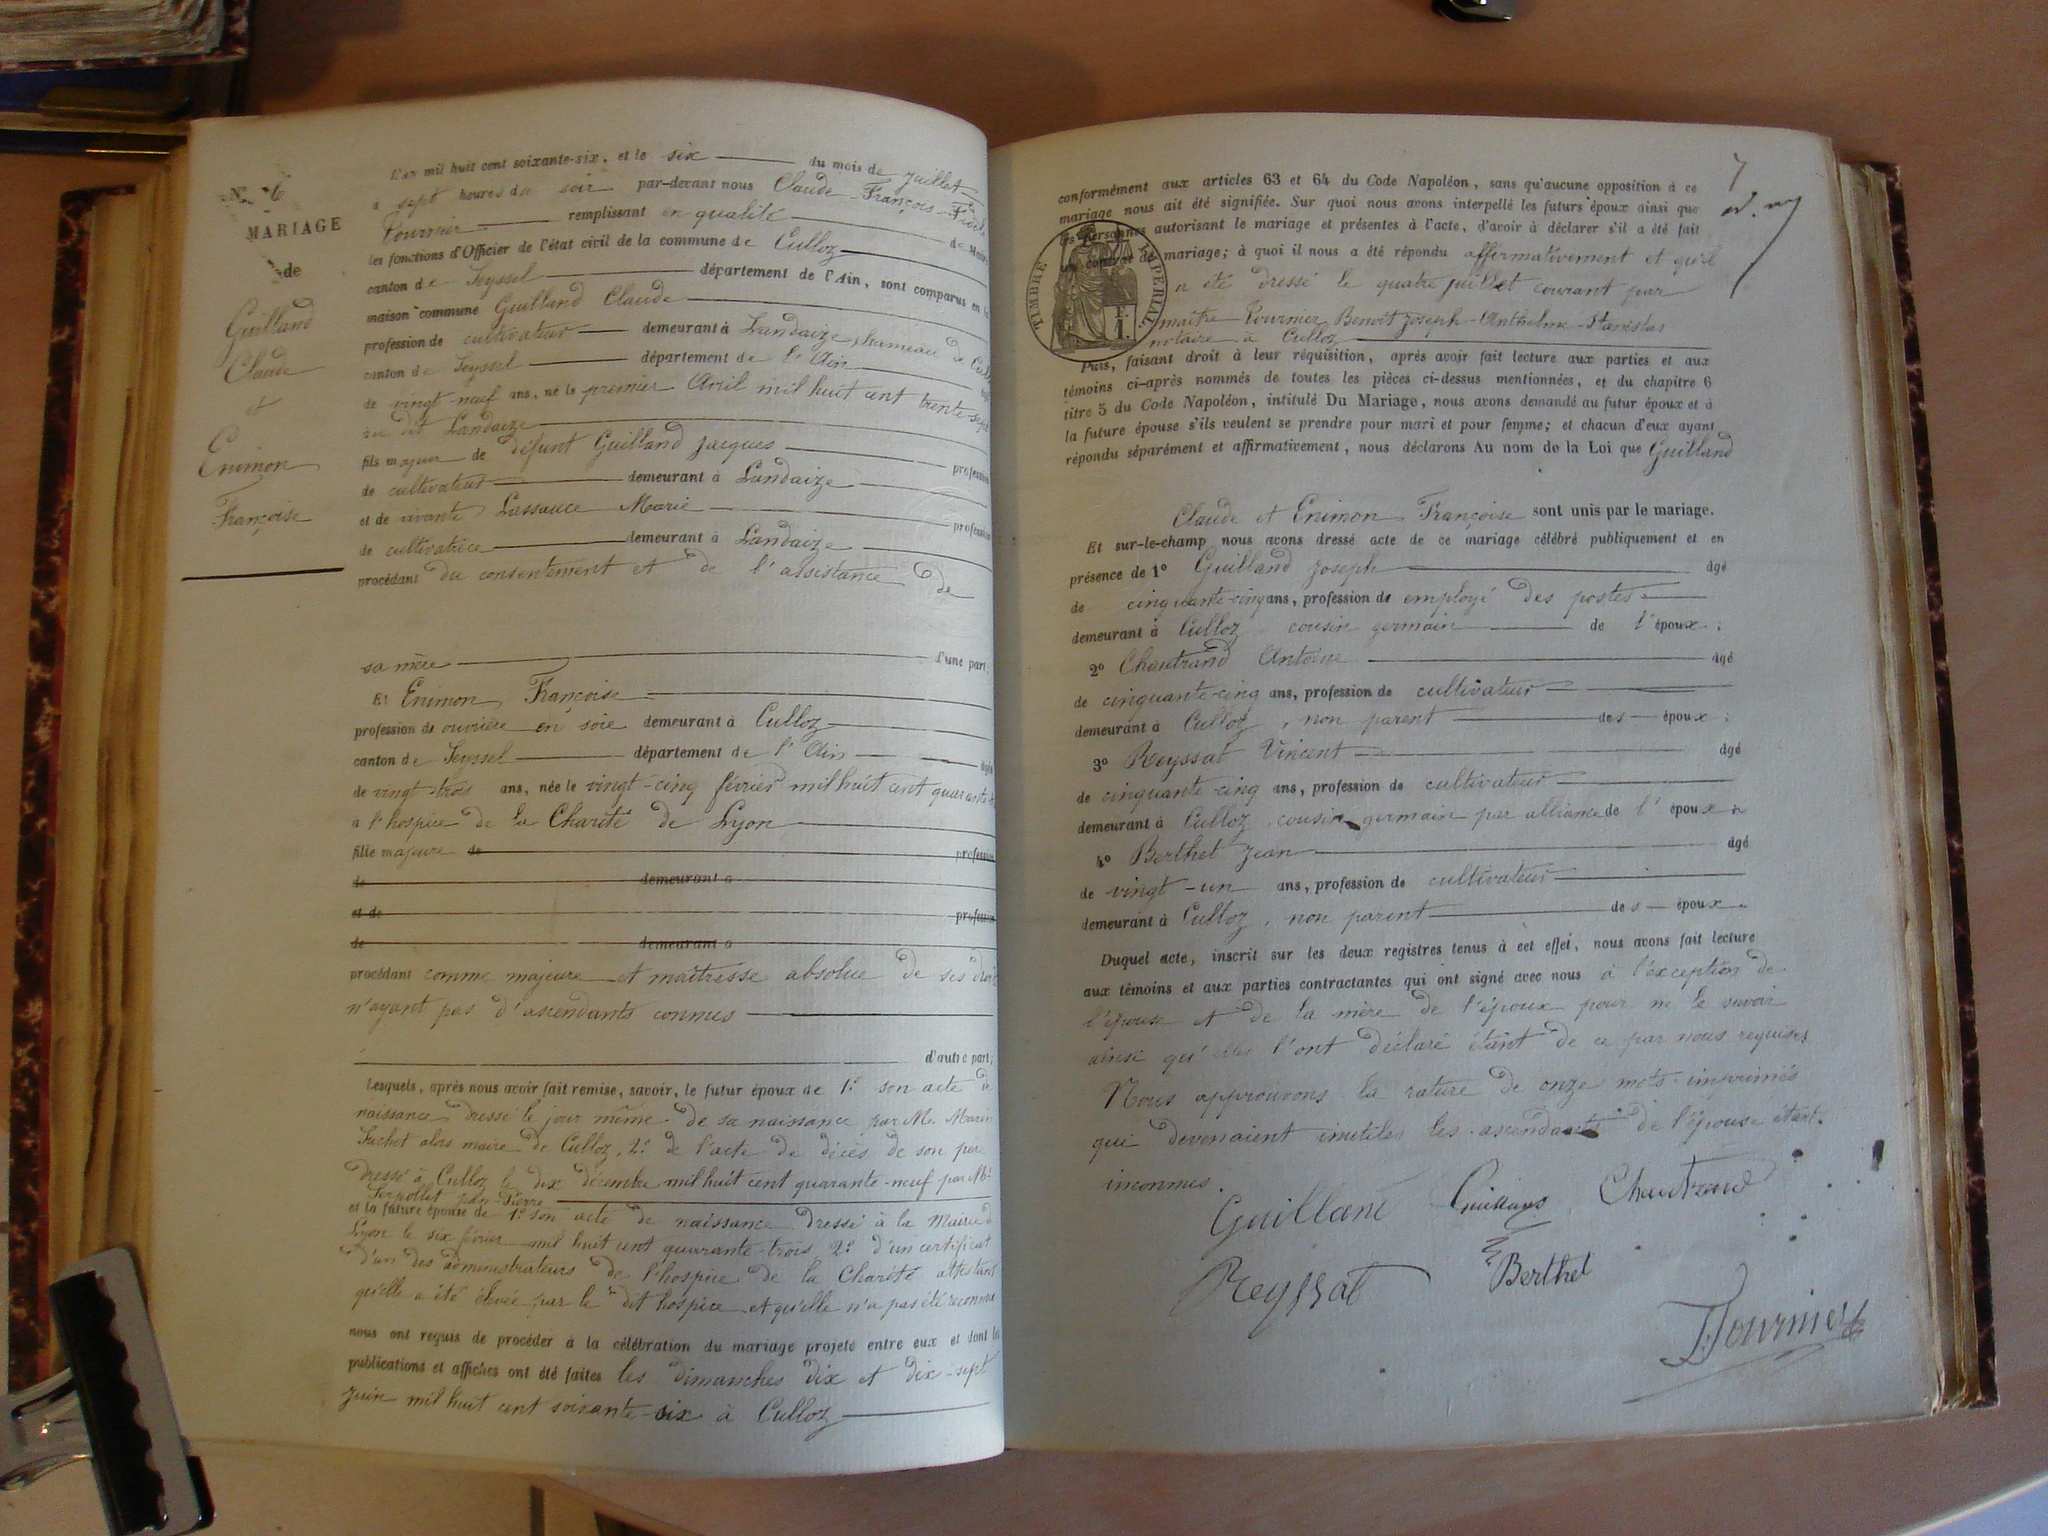 N° 6
MARIAGE
de
Guilland
Claude
et
Enimon
Françoise
L'an mil huit cent soixante-six, et le six du mois de juillet
à sept heures du soir par-devant nous Claude-François-
Tournier remplissant en qualité de Maire
les fonctions d'Officier de l'état civil de la commune de Culloz
canton de Seyssel département de l'Ain, sont comparus en la
maison commune Guilland Claude
profession de cultivateur demeurant à Landaize, hameau de Culloz
canton de Seyssel département de l'Ain
de vingt-neuf ans, né le premier Avril mil huit cent trente-sept
au dit Landaize
fils majeur de défunt Guilland Jacques profession
de cultivateur demeurant à Landaize
et de vivante Lassauce Marie profession
de cultivatrice demeurant à Landaize
procédant du consentement et de l'assistance de
sa mère d'une part;
Et Enimon Françoise
profession de ouvrière en soie demeurant à Culloz
canton de Seyssel département de l'Ain âgée
de vingt-trois ans, née le vingt-cinq février mil huit cent quarante-
à l'hospice de la Charité de Lyon
fille majeure de profession
de demeurant à
et de profession
de demeurant à
procédant comme majeure et maîtresse absolue de ses droits
n'ayant pas d'ascendants connus
d'autre part;
Lesquels, après nous avoir fait remise, savoir, le futur époux de 1° son acte de
naissance dressé le jour même de sa naissance par Mr. Marin
Suchet alors maire de Culloz, 2° de l'acte de décès de son père
dressé à Culloz le dix décembre mil huit cent quarante-neuf par Mr
Serpollet Jean-Pierre
et la future épouse de 1° son acte de naissance dressé à la Mairie de
Lyon le six février mil huit cent quarante-trois 2° d'un certificat
d'un des administrateurs de l'hospice de la Charité attestant
qu'elle a été élevée par le dit hospice et qu'elle n'a pas été reconnue
nous ont requis de procéder à la célébration du mariage projeté entre eux et dont les
publications et affiches ont été faites les dimanches dix et dix-sept
juin mil huit cent soixante-six à Culloz
7
conformément aux articles 63 et 64 du Code Napoléon, sans qu'aucune opposition à ce
mariage nous ait été signifiée. Sur quoi nous avons interpellé les futurs époux ainsi que
les personnes autorisant le mariage et présentes à l'acte, d'avoir à déclarer s'il a été fait
un contrat de mariage; à quoi il nous a été répondu affirmativement et qu'il
a été dressé le quatre juillet courant par
maître Tournier Benoit Joseph-Anthelme-Stanislas
notaire à Culloz
TIMBRE IMPÉRIAL
1 F.
Puis, faisant droit à leur réquisition, après avoir fait lecture aux parties et aux
témoins ci-après nommés de toutes les pièces ci-dessus mentionnées, et du chapitre 6
titre 5 du Code Napoléon, intitulé Du Mariage, nous avons demandé au futur époux et à
la future épouse s'ils veulent se prendre pour mari et pour femme; et chacun d'eux ayant
répondu séparément et affirmativement, nous déclarons Au nom de la Loi que Guilland
Claude et Enimon Françoise sont unis par le mariage.
Et sur-le-champ nous avons dressé acte de ce mariage célébré publiquement et en
présence de 1° Guilland Joseph âgé
de cinquante-cinq ans, profession de employé des postes
demeurant à Culloz cousin germain de l'époux;
2° Chautrand Antoine âgé
de cinquante-cinq ans, profession de cultivateur
demeurant à Culloz, non parent des époux;
3° Reyssat Vincent âgé
de cinquante-cinq ans, profession de cultivateur
demeurant à Culloz, cousin germain par alliance de l'époux
4° Berthet Jean âgé
de vingt-un ans, profession de cultivateur
demeurant à Culloz, non parent des époux.
Duquel acte, inscrit sur les deux registres tenus à cet effet, nous avons fait lecture
aux témoins et aux parties contractantes qui ont signé avec nous à l'exception de
l'épouse et de la mère de l'époux pour ne le savoir
ainsi qu'elles l'ont déclaré étant de ce par nous requises
Nous approuvons la rature de onze mots imprimés
qui devenaient inutiles les ascendants de l'épouse étant
inconnus.
Guilland Guilland Chautrand
Reyssat Berthet
Tournier